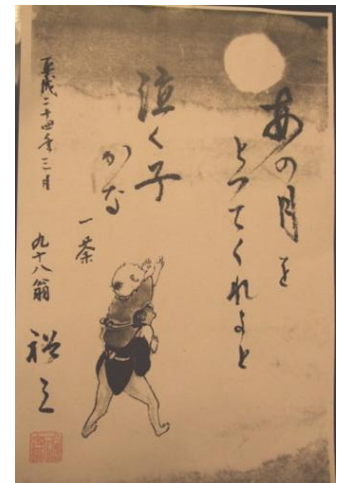 あの月を
とつてくれよと
泣く子
かな
一茶
平成二十四年三月
九十八翁